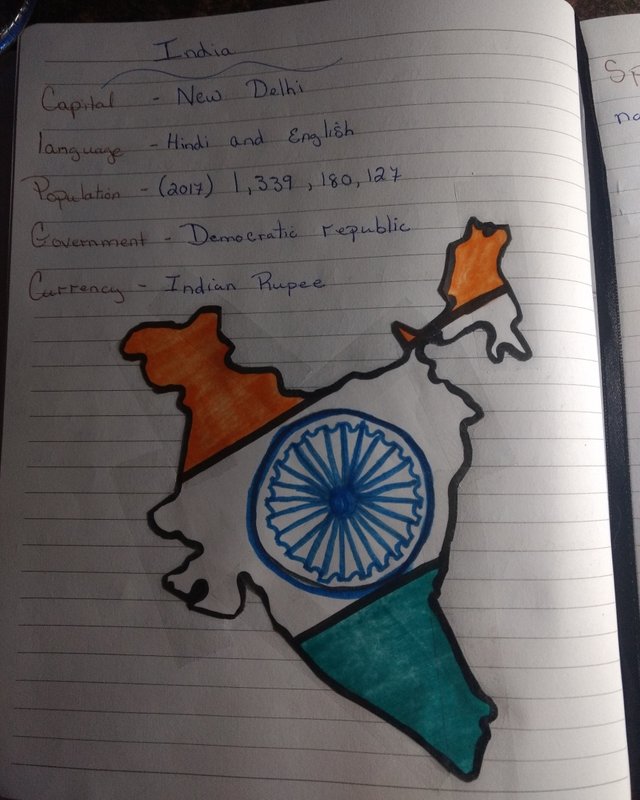 India
Capital - New Delhi
language - Hindi and English
Population - (2017) 1,339,180,127
Government - Democratic republic
Currency - Indian Rupee
Sp
na